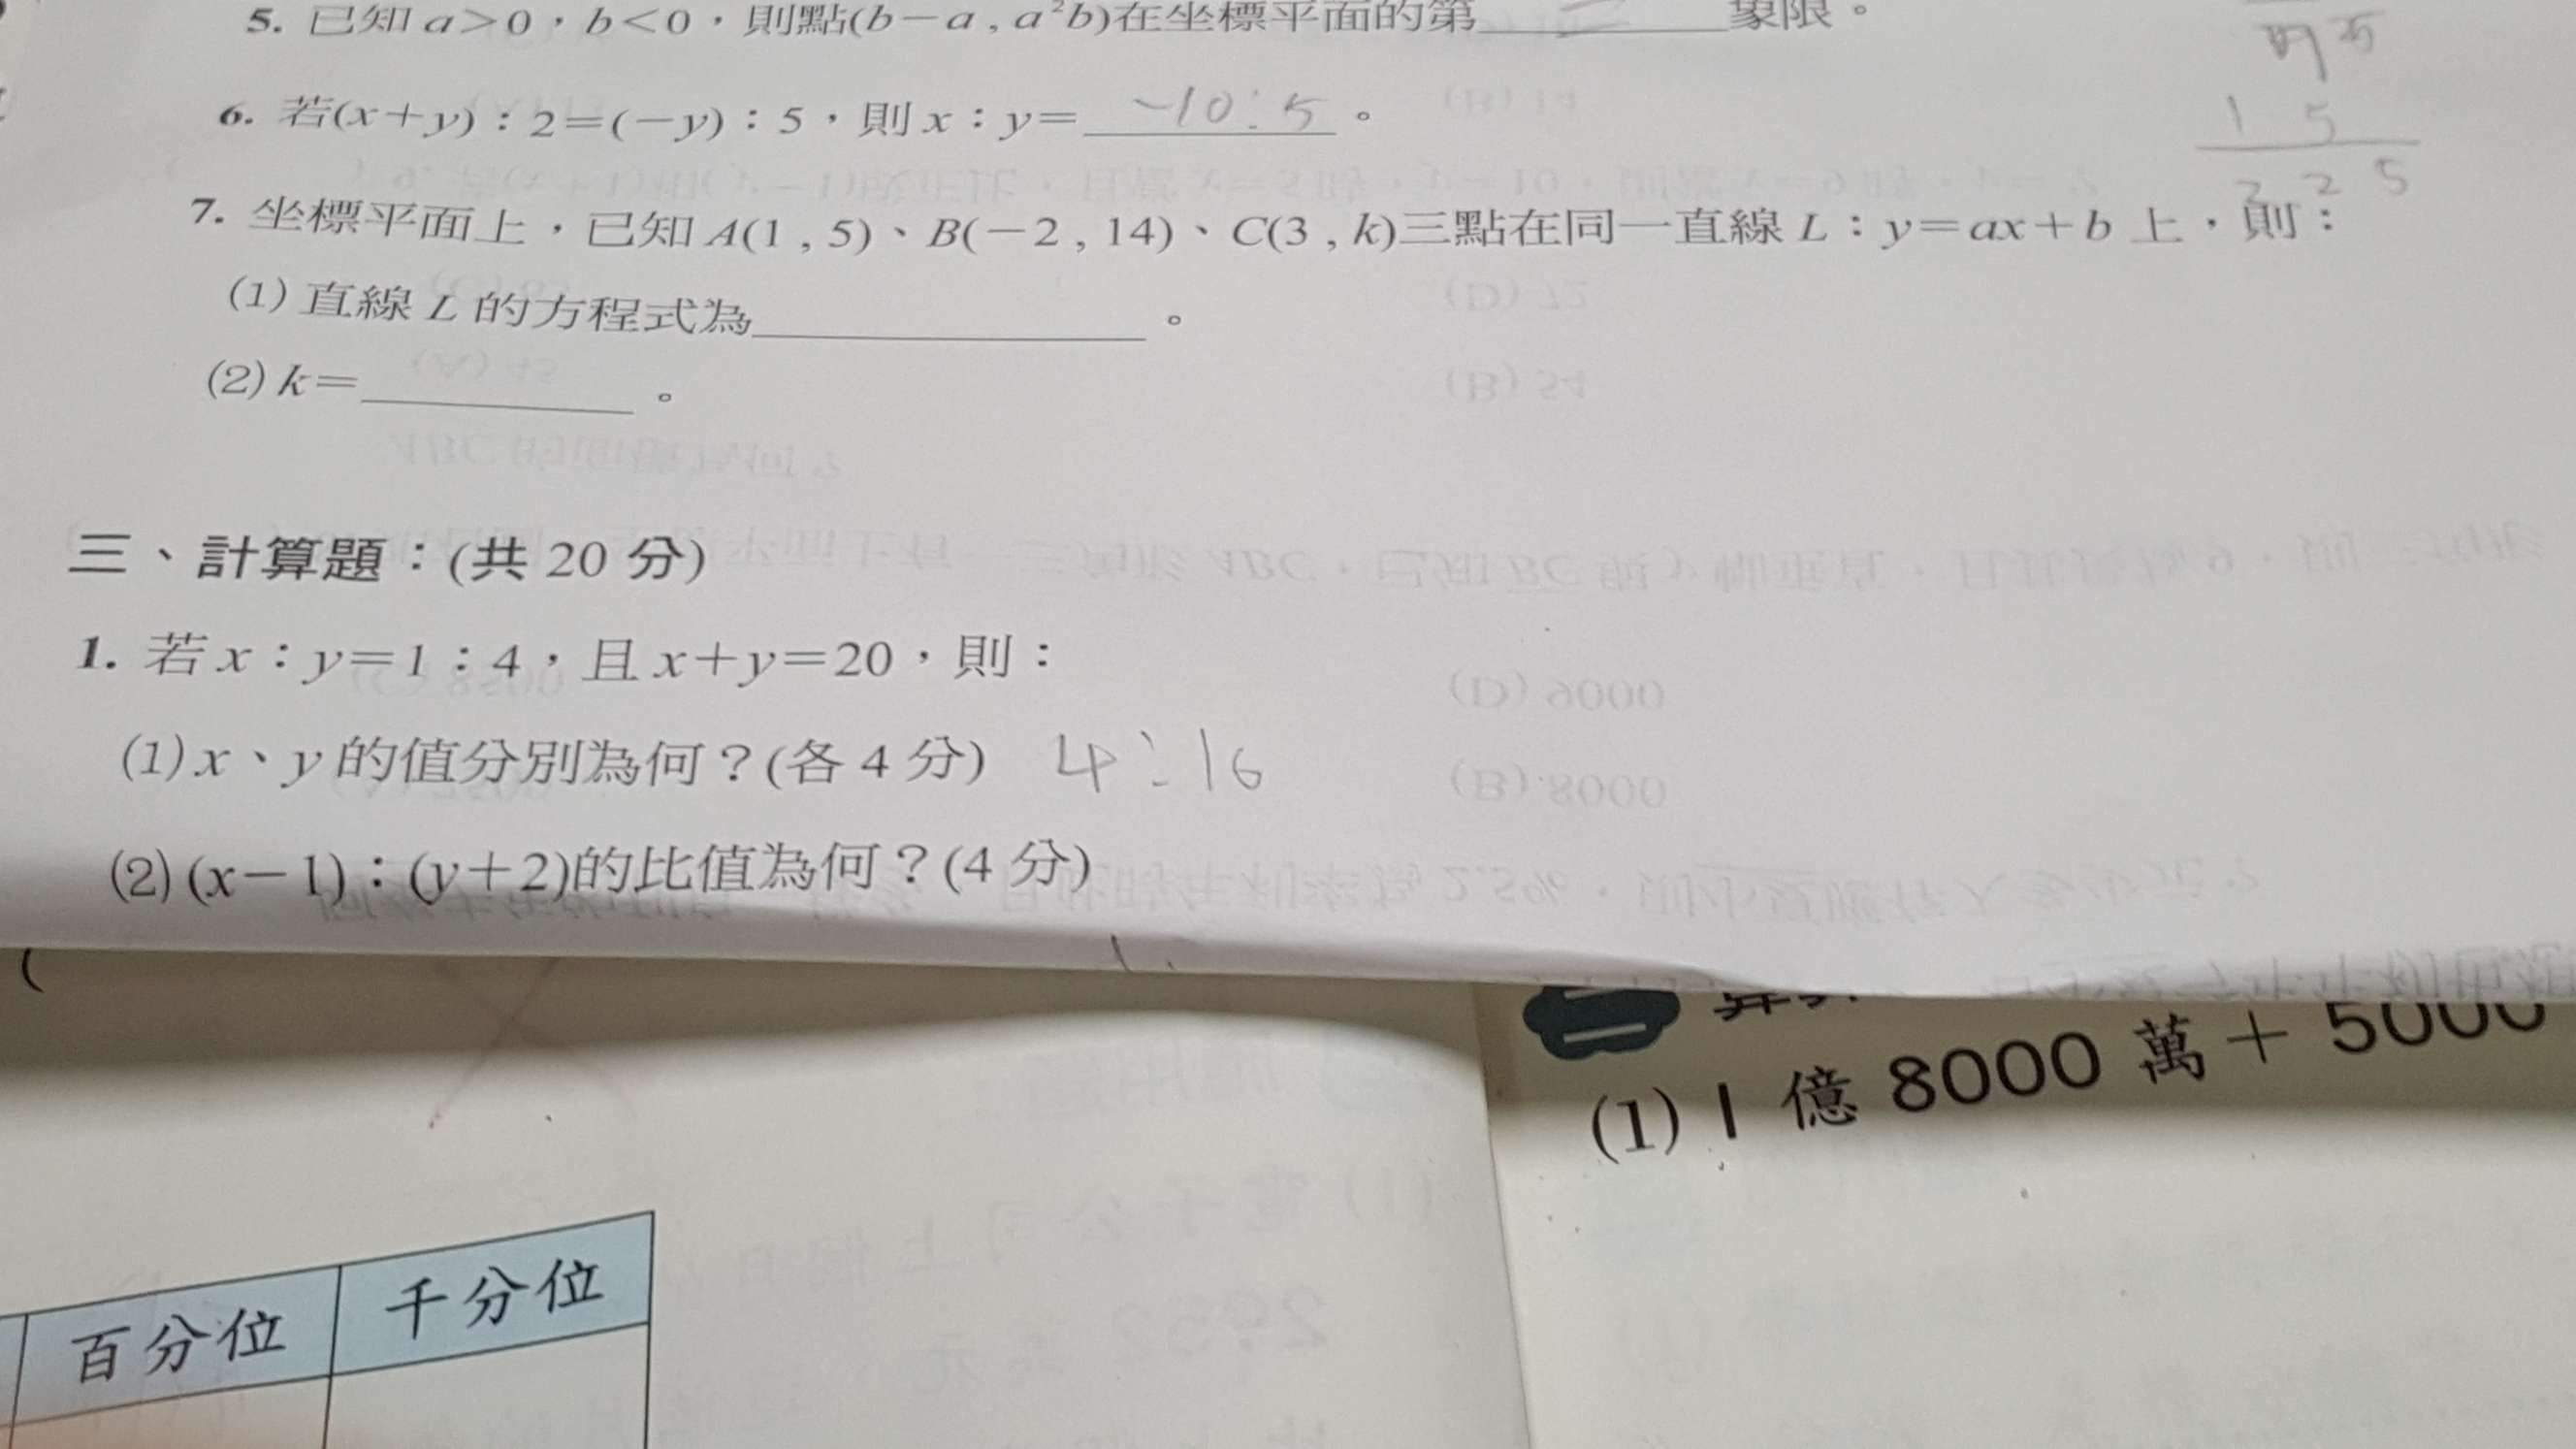 5. 已知 a>0，b<0，則點(b－a , a²b)在坐標平面的第 三 象限。
6. 若(x＋y)：2＝(－y)：5，則 x：y＝ -10:5 。
7. 坐標平面上，已知 A(1 , 5)、B(－2 , 14)、C(3 , k)三點在同一直線 L：y＝ax＋b 上，則：
(1) 直線 L 的方程式為＿＿＿＿。
(2) k＝＿＿＿＿。
三、計算題：(共 20 分)
1. 若 x：y＝1：4，且 x＋y＝20，則：
(1) x、y 的值分別為何？(各 4 分) 4:16
(2) (x－1)：(y＋2)的比值為何？(4 分)
15
225
二
(1) 1 億 8000 萬＋5000
百分位 千分位